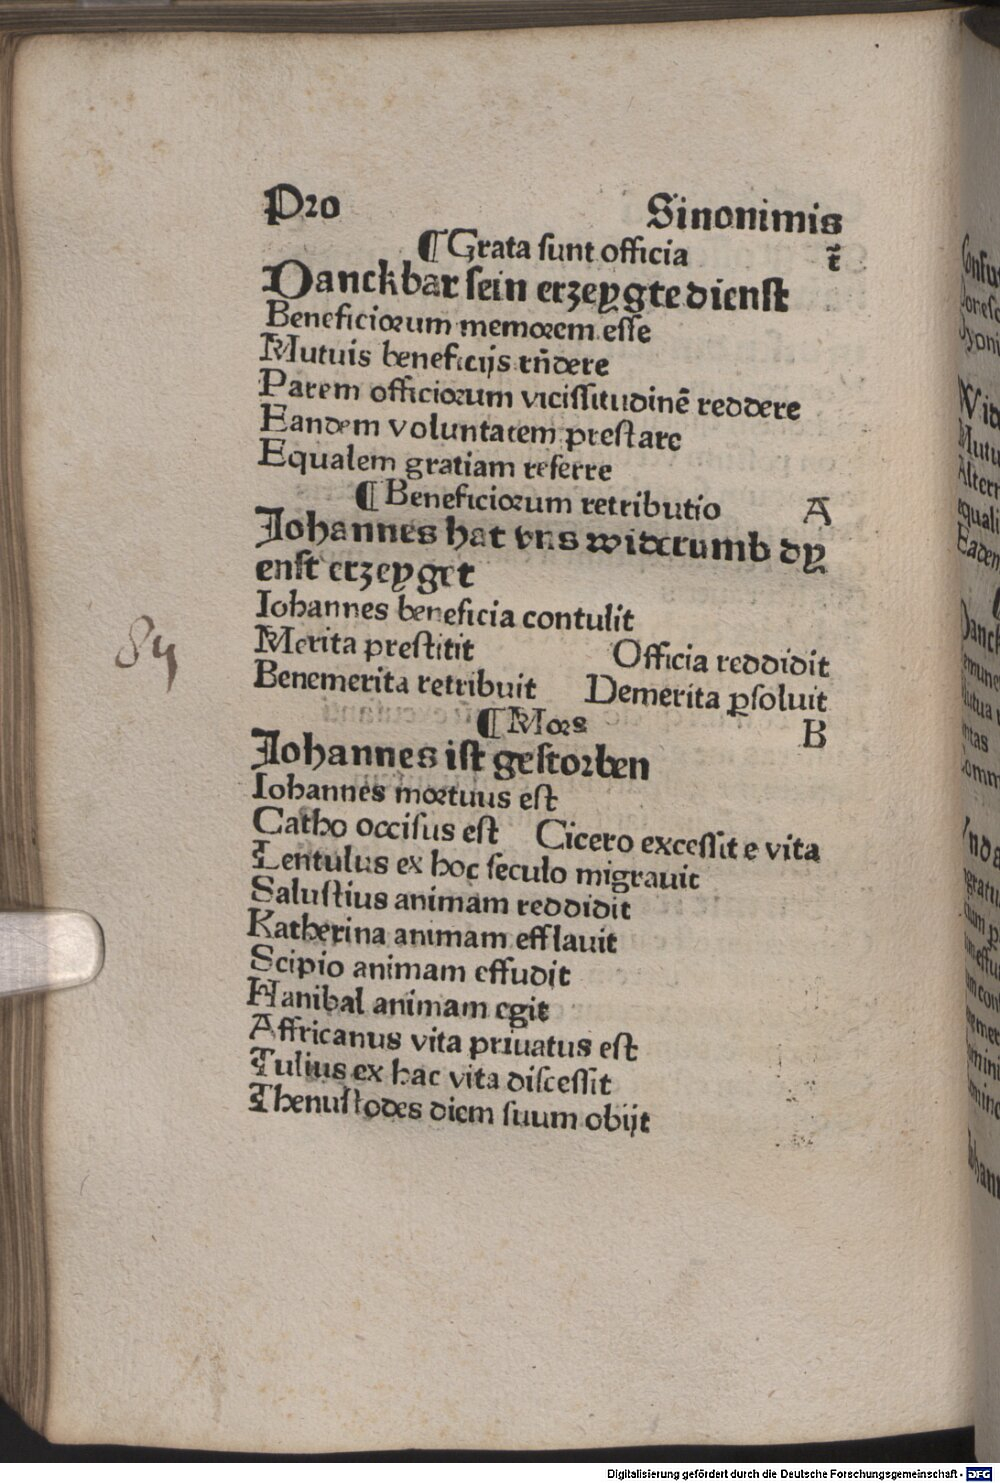 Pro Sinonimis
¶Grata sunt officia r̃
Danckbar sein erzeygte dienst
Beneficiorum memorem esse
Mutuis beneficijs rñdere
Parem officiorum vicissitudinẽ reddere
Eandem voluntatem prestare
Equalem gratiam referre
¶Beneficiorum retributio A
Johannes hat vns widerumb dy
enst erzeyget
Iohannes beneficia contulit
Merita prestitit Officia reddidit
Benemerita retribuit Demerita ꝑsoluit
¶Mors B
Johannes ist gestorben
Iohannes mortuus est
Catho occisus est Cicero excessit e vita
Lentulus ex hoc seculo migrauit
Salustius animam reddidit
Katherina animam efflauit
Scipio animam effudit
Hanibal animam egit
Affricanus vita priuatus est
Tulius ex hac vita discessit
Thenustodes diem suum obijt
Digitalisierung gefördert durch die Deutsche Forschungsgemeinschaft - DFG